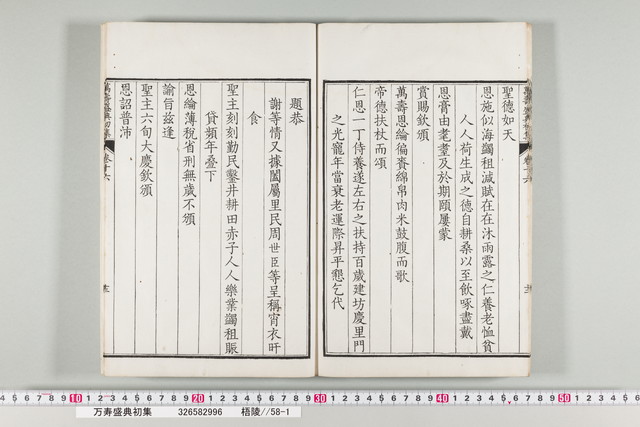 聖德如天
恩施似海蠲租減賦在在沐雨露之仁養老恤貧
人人荷生成之德自耕桑以至飲啄盡戴
恩膏由老耋及於期頤屢蒙
賞賜欽頒
萬壽恩綸徧賚綿帛肉米鼓腹而歌
帝德扶杖而頌
仁恩一丁侍養遂左右之扶持百歲建坊慶里門
之光寵年當衰老運際昇平懇乞代
題恭
謝等情又據闔屬里民周世臣等呈稱宵衣旰
食
聖主刻刻勤民鑿井耕田赤子人人樂業蠲租賑
貸頻年疊下
恩綸薄稅省刑無歲不頒
諭旨兹逢
聖主六旬大慶欽頒
恩詔普沛
萬壽盛典初集
卷十六
10 20 30 40 50 60
万寿盛典初集 326582996 梧陵//58-1